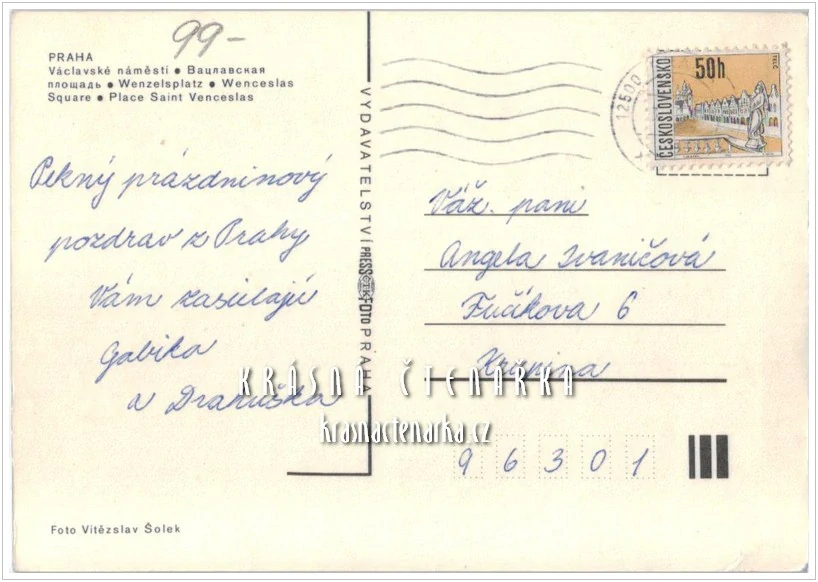 99-
PRAHA
Václavské náměstí ● Вацлавская
площадь ● Wenzelsplatz ● Wenceslas
Square ● Place Saint Venceslas
Pekný prázdninový
pozdrav z Prahy
Vám zasielajú
Gabika
a Dranuška
VYDAVATELSTVÍ PRESSFOTO PRAHA
12500
ČESKOSLOVENSKO
50h
TELČ
Váž. pani
Angela Ivaničová
Fučíkova 6
Krupina
96301
KRÁSNÁ ČTENÁŘKA
krasnactenarka.cz
Foto Vítězslav Šolek